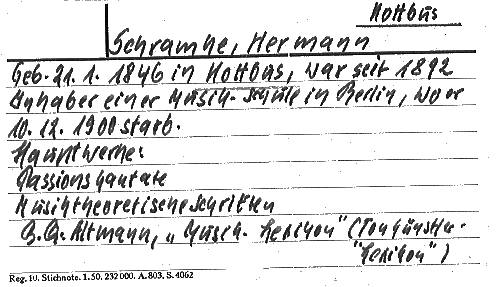 Kottbus
Schramke, Hermann
Geb. 21. 1. 1846 in Kottbus, war seit 1892
Inhaber einer Musik-Schule in Berlin, wo er
10. 12. 1900 starb.
Hauptwerke:
Passionskantate
Musiktheoretische Schriften
Altmann, „Musik-Lexikon" (Tonkünstler-
"Lexikon")
Reg. 10. Stichnote. 1. 50. 232 000. A. 803. S. 4062